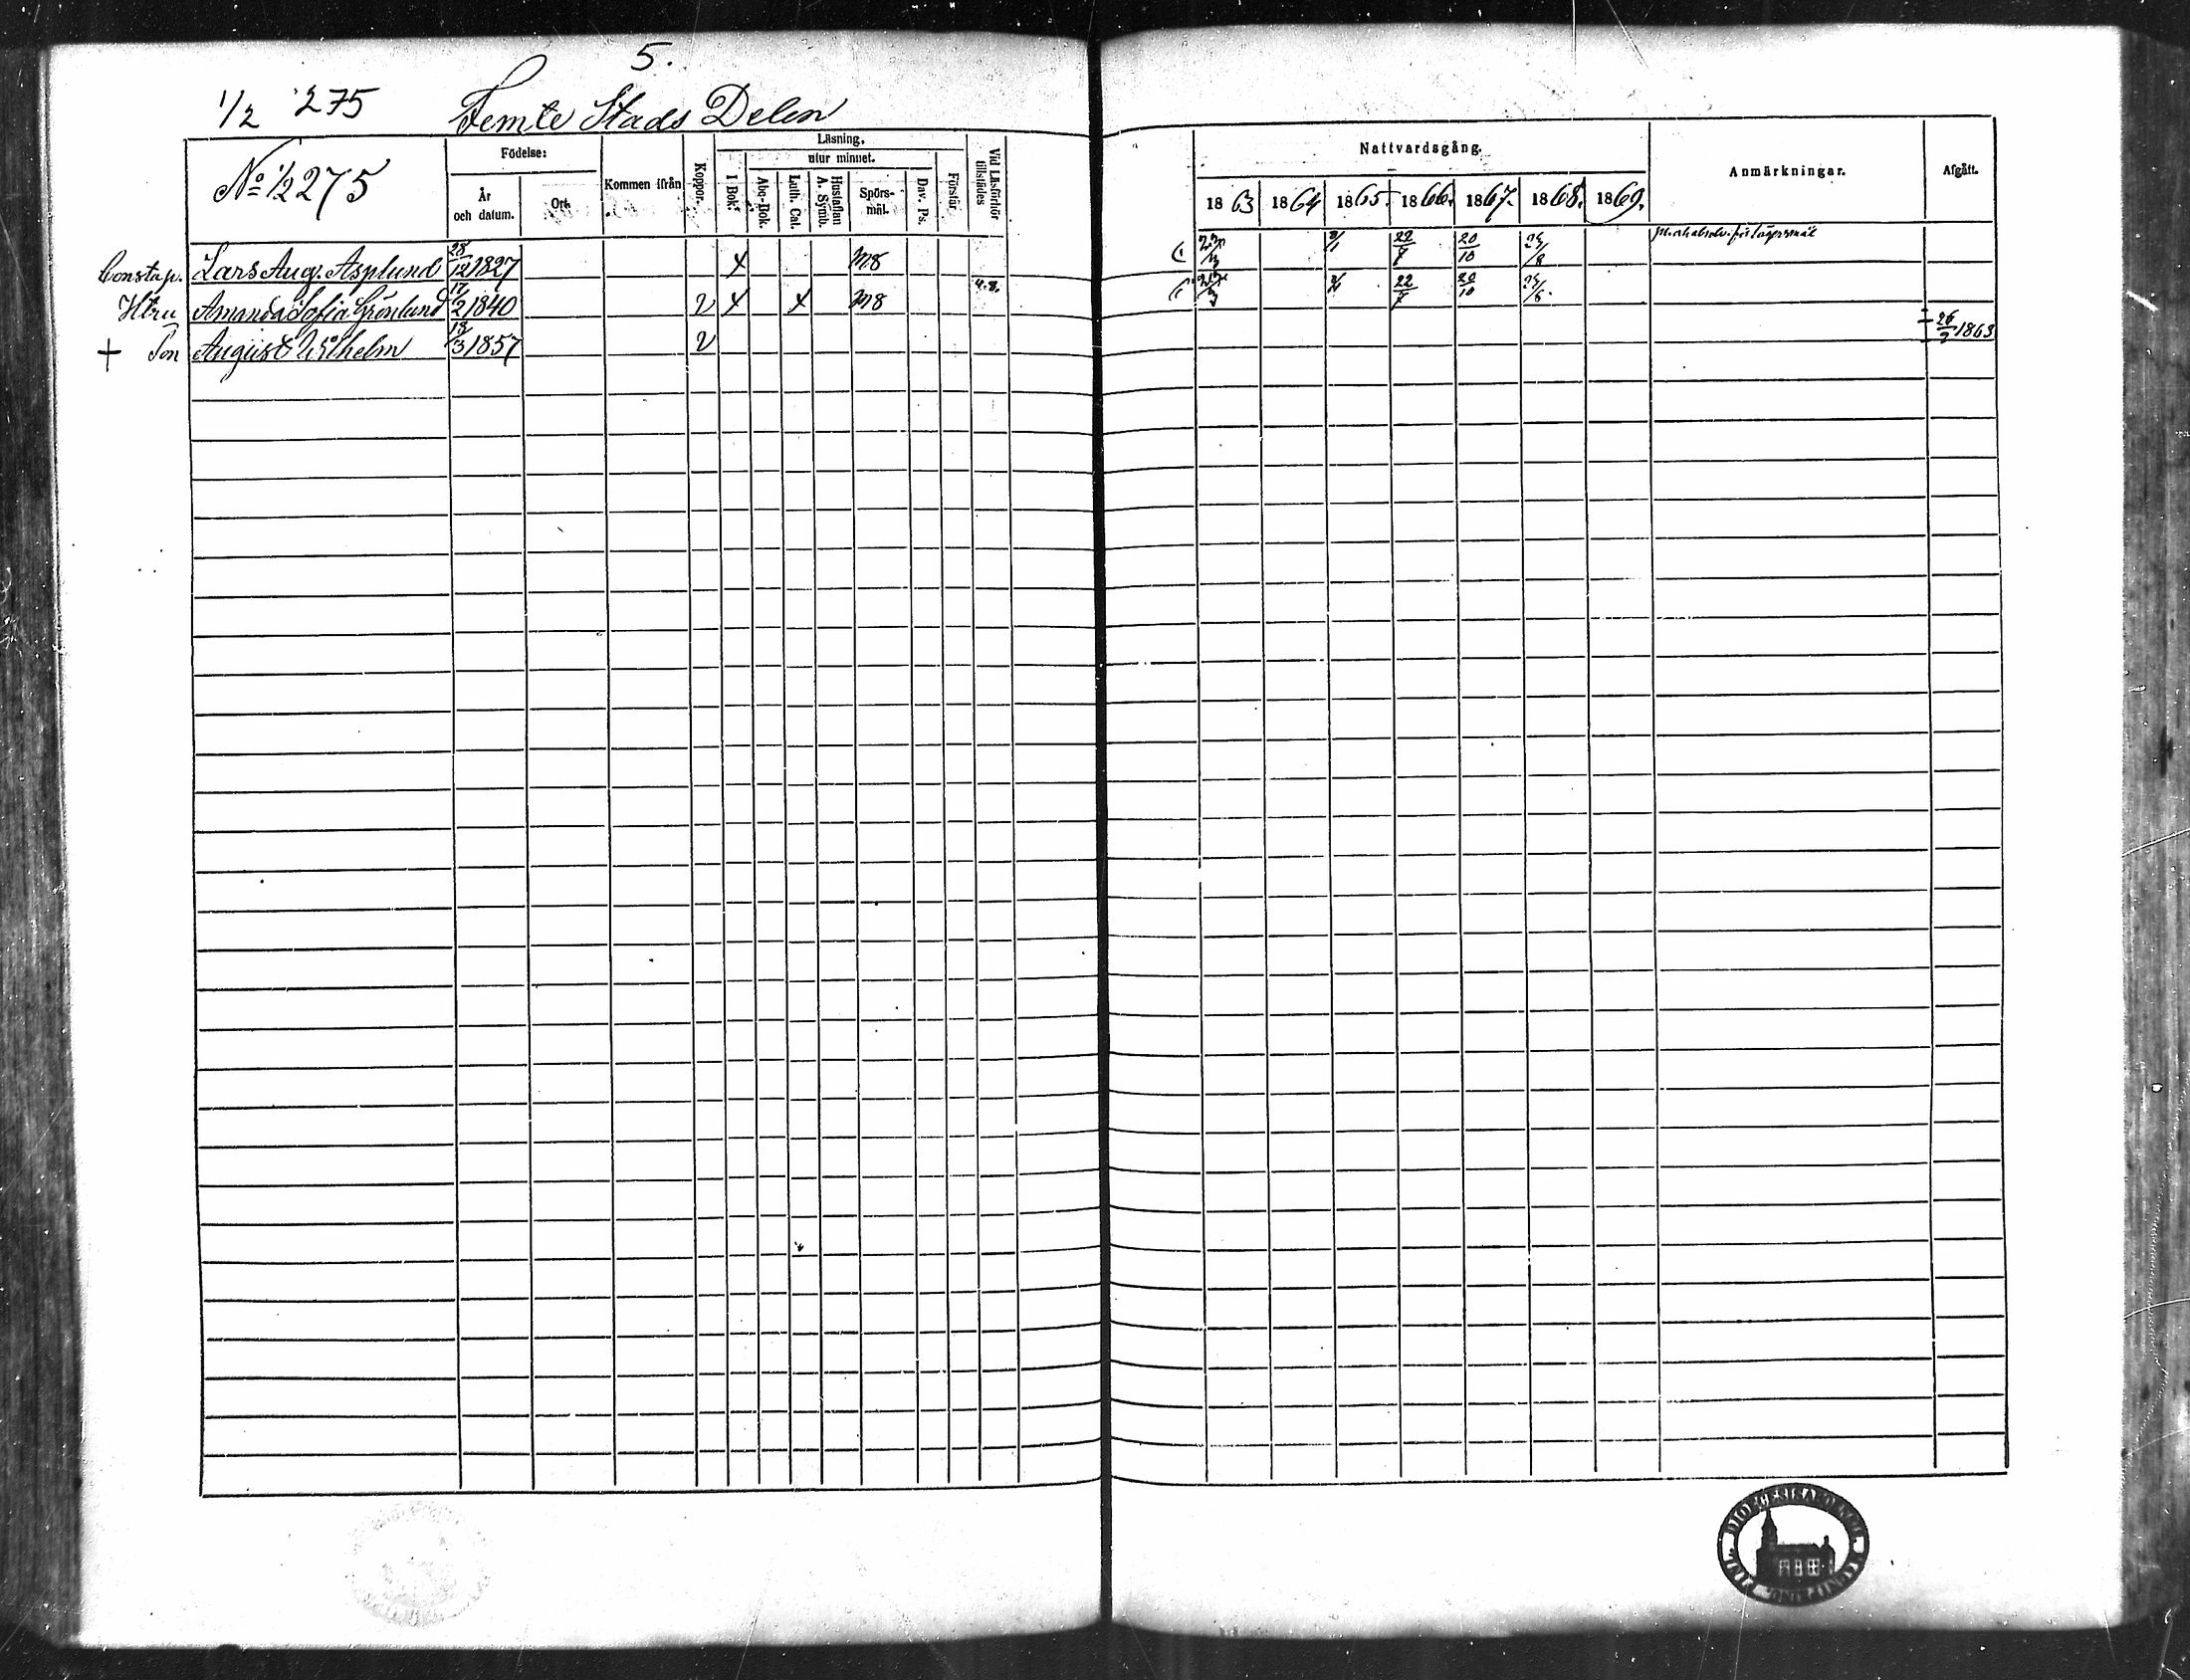 5.
1/2 275 Femte Stads Delen
No 1/2 275
Födelse:
År och datum.
Ort.
Kommen ifrån
Koppor.
Läsning.
utur minnet.
I Bok.
Abc-Bok.
Luth. Cat.
Hustaflan A. Symb.
Spörs-mål.
Dav. Ps.
Förstår.
Vid Läsförhör tillstädes
Nattvardsgång.
1863 1864 1865. 1866. 1867. 1868. 1869.
Anmärkningar.
Afgått.
Constap. Lars Aug. Asplund 28/12 1827 x m8 22/7 20/10
Htru Amanda Sofia Grönlund 17/2 1840 v x x m8 4.8. 22/7 20/10
+ Son August Wilhelm 13/3 1857 v 26/3 1863